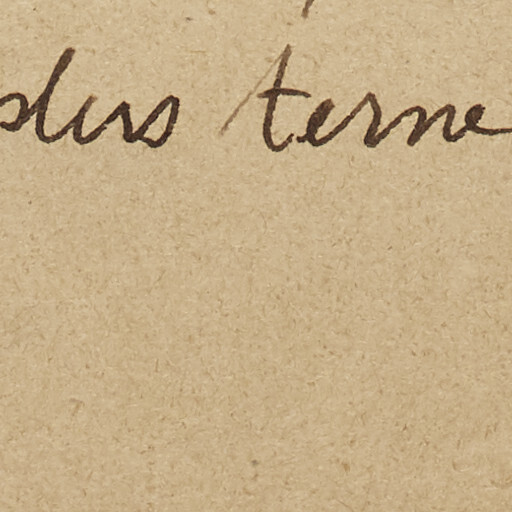 plus terne